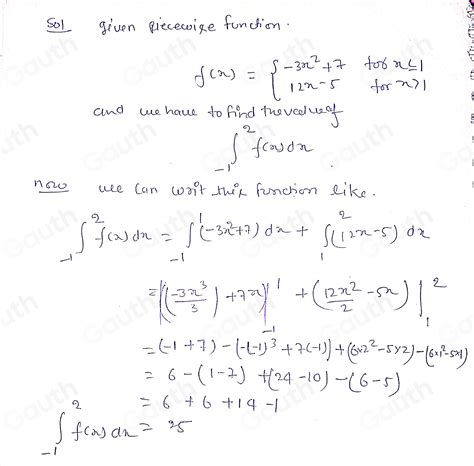 Sol given piecewise function.
f(x) = { -3x²+7 for x≤1
12x-5 for x>1
and we have to find the value of
∫₋₁² f(x) dx
now we can writ this function like.
∫₋₁² f(x) dx = ∫₋₁¹ (-3x²+7) dx + ∫₁² (12x-5) dx
= ((-3x³/3) + 7x)|₋₁¹ + (12x²/2 - 5x)|₁²
= (-1+7) - (-(-1)³+7(-1)) + (6×2²-5×2) - (6×1²-5×1)
= 6 - (1-7) + (24-10) - (6-5)
= 6 + 6 + 14 - 1
∫₋₁² f(x) dx = 25